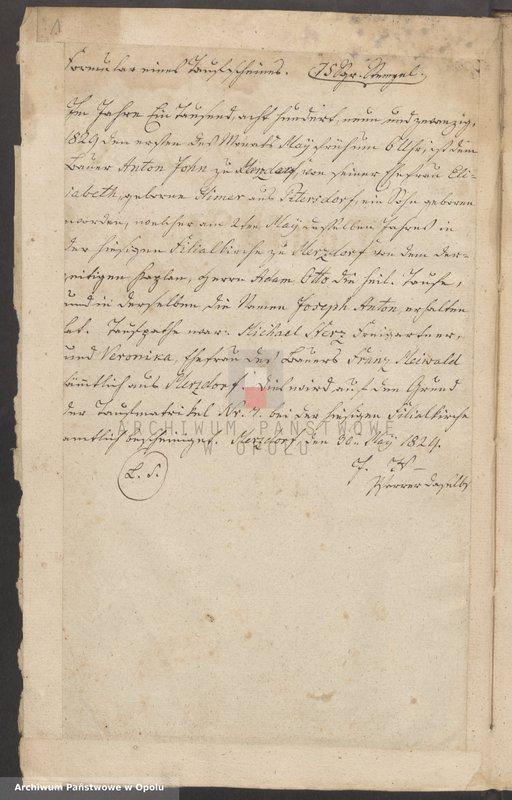 1
Formular eines Taufscheines. (15 Sgr. Stempel.)
Im Jahre Ein Tausend, acht hundert, neun und zwanzig,
1829 den ersten des Monats May früh um 6 Uhr, ist dem
Bauer Anton John zu Herzdorf, von seiner Ehefrau Eli-
sabeth, geborne Himer aus Petersdorf, ein Sohn geboren
worden, welcher am 2ten May desselben Jahres in
der hiesigen Filialkirche zu Herzdorf von dem der-
zeitigen Kaplan, Herrn Adam Otto die heil. Taufe,
und in derselben die Namen Joseph Anton, erhalten
hat. Taufpathe war: Michael Herz Freigärtner,
und Veronika, Ehefrau des Bauers Franz Meiwald
sämtlich aus Herzdorf. Dies wird auf den Grund
der Taufmatrikel Nr. 7. bei der hiesigen Filialkirche
amtlich bescheiniget. Herzdorf, den 30. May 1829.
L. S.
Pfarrer daselbst
ARCHIWUM PAŃSTWOWE
W OPOLU
Archiwum Państwowe w Opolu